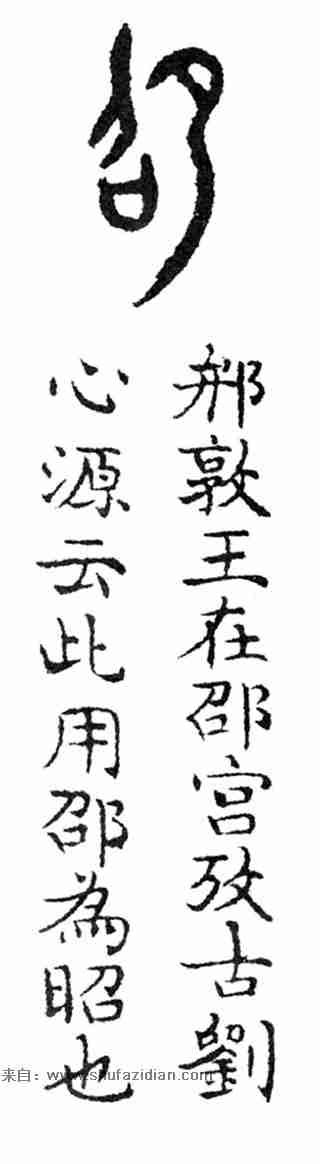 邵
郱敦王在邵宫攷古劉
心源云此用邵為昭也
来自：www.shufazidian.com